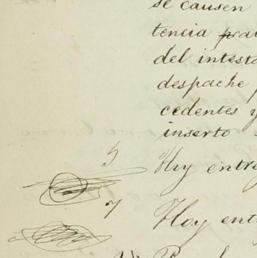 se causen
tencia
del intest
despache
cedentes y
inserto
5 Hoy entre
7 Hoy ent